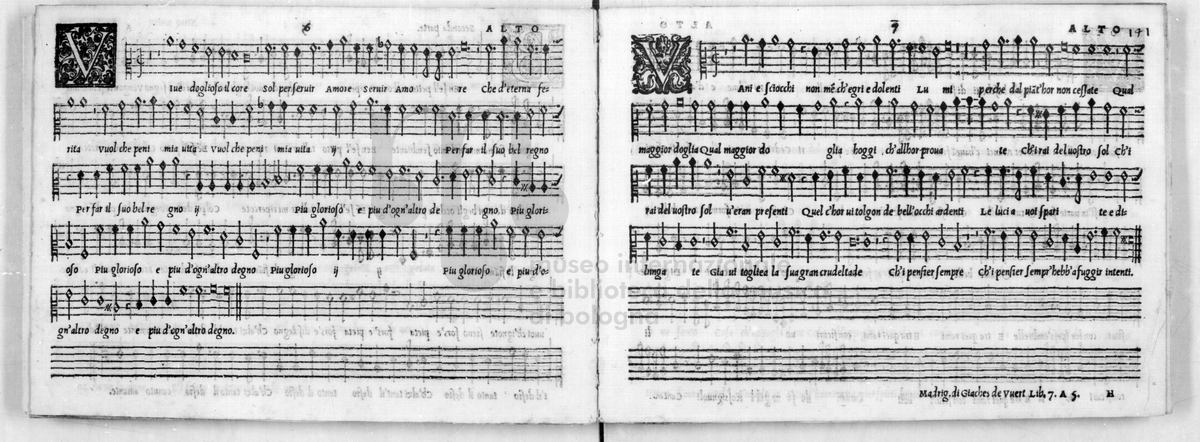 6 ALTO
V Iue doglioso il core Sol per seruir Amore Seruir Amo re Che d'eterna fe-
rita Vuol che peni mia uita Vuol che peni mia uita ij Per far il suo bel regno
Per far il suo bel re gno ij Piu glorioso e piu d'ogn'altro de gno. Piu glori-
oso Piu glorioso e piu d'ogn'altro degno Piu glorioso ij ij Piu glorioso e piu d'o-
gn'altro degno e piu d'ogn'altro degno.
7 ALTO
V Ani e sciocchi non mē ch'egri e dolenti Lu mi perche dal piāt'hor non cessate Qual
maggior doglia Qual maggior do glia hoggi ch'allhor proua te Ch'i rai del uostro sol Ch'i
rai del uostro sol u'eran presenti Quel c'hor ui tolgon de bell'occhi ardenti Le luci a uoi spari te e di-
lunga te Gia ui togliea la sua gran crudeltade Ch'i pensier sempre Ch'i pensier sempr'hebb'a fuggir intenti.
Madrig. di Giaches de Vuert Lib. 7. A 5. H
museo internazionale
e biblioteca della musica
di bologna